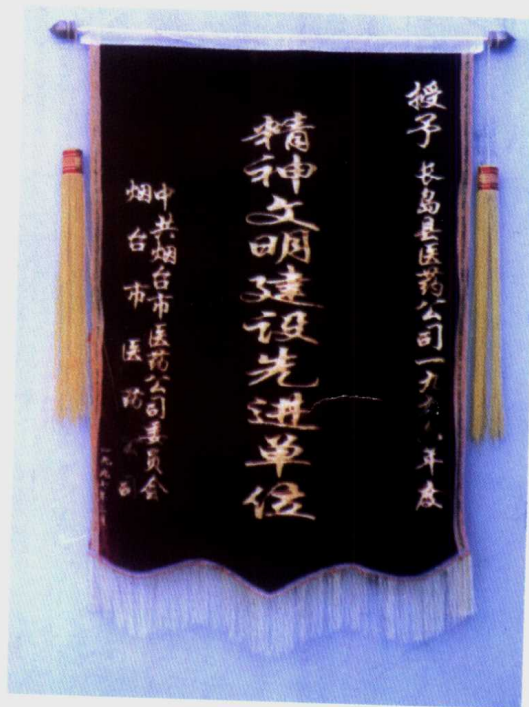 授予长岛县医药公司一九八年度
精神文明建设先进单位
中共烟台市医药公司委员会
烟台市医药公司
一九九年月